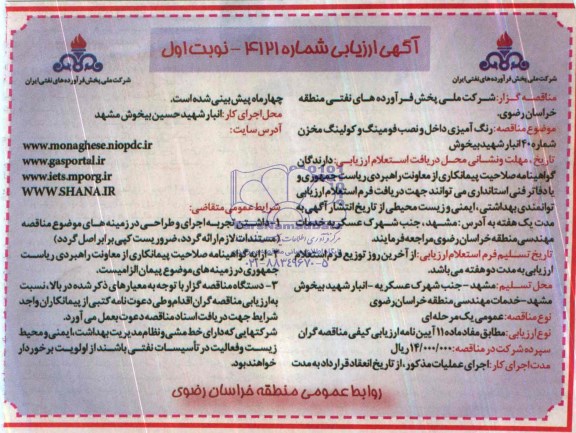 آگهی ارزیابی شماره ۴۱۲۱ - نوبت اول
شرکت ملی پخش فرآورده های نفتی ایران
شرکت ملی پخش فرآورده های نفتی ایران
مناقصه گزار: شرکت ملی پخش فرآورده های نفتی منطقه
خراسان رضوی.
موضوع مناقصه: رنگ آمیزی داخل و نصب فومینگ و کولینگ مخزن
شماره ۴۰ انبار شهید بیخوش
تاریخ، مهلت و نشانی محل دریافت استعلام ارزیابی: دارندگان
گواهینامه صلاحیت پیمانکاری از معاونت راهبردی ریاست جمهوری و
یا دفاتر فنی استانداری می توانند جهت دریافت فرم استعلام ارزیابی
توانمندی بهداشتی، ایمنی و زیست محیطی از تاریخ انتشار آگهی به
مدت یک هفته به آدرس: مشهد، جنب شهرک عسکریه - خدمات
مهندسی منطقه خراسان رضوی مراجعه فرمایند.
تاریخ تسلیم فرم استعلام ارزیابی: از آخرین روز توزیع فرم استعلام
ارزیابی به مدت دو هفته می باشد.
محل تسلیم: مشهد - جنب شهرک عسکریه - انبار شهید بیخوش
مشهد - خدمات مهندسی منطقه خراسان رضوی
نوع مناقصه: عمومی یک مرحله ای
نوع ارزیابی: مطابق مفاد ماده ۱۱ آیین نامه ارزیابی کیفی مناقصه گران
سپرده شرکت در مناقصه: ۱۴/۰۰۰/۰۰۰ ریال
مدت اجرای کار: اجرای عملیات مذکور، از تاریخ انعقاد قرارداد به مدت
چهار ماه پیش بینی شده است.
محل اجرای کار: انبار شهید حسین بیخوش مشهد
آدرس سایت:
www.monaghese.niopdc.ir
www.gasportal.ir
www.iets.mporg.ir
WWW.SHANA.IR
شرایط عمومی متقاضی:
۱- داشتن تجربه اجرای و طراحی در زمینه های موضوع مناقصه
(مستندات لازم ارائه گردد، ضروریست کپی برابر اصل گردد)
۲- ارائه گواهینامه صلاحیت پیمانکاری از معاونت راهبردی ریاست
جمهوری در زمینه های موضوع پیمان الزامیست.
۳- دستگاه مناقصه گزار با توجه به معیارهای ذکر شده در بالا، نسبت
به ارزیابی مناقصه گران اقدام و طی دعوت نامه کتبی از پیمانکاران واجد
شرایط جهت دریافت اسناد مناقصه دعوت بعمل می آورد.
شرکتهایی که دارای خط مشی و نظام مدیریت بهداشت، ایمنی و محیط
زیست و فعالیت در تأسیسات نفتی باشند از اولویت برخوردار
خواهند بود.
روابط عمومی منطقه خراسان رضوی
۰۲۱-۸۸۳۴۹۶۷۰-۵